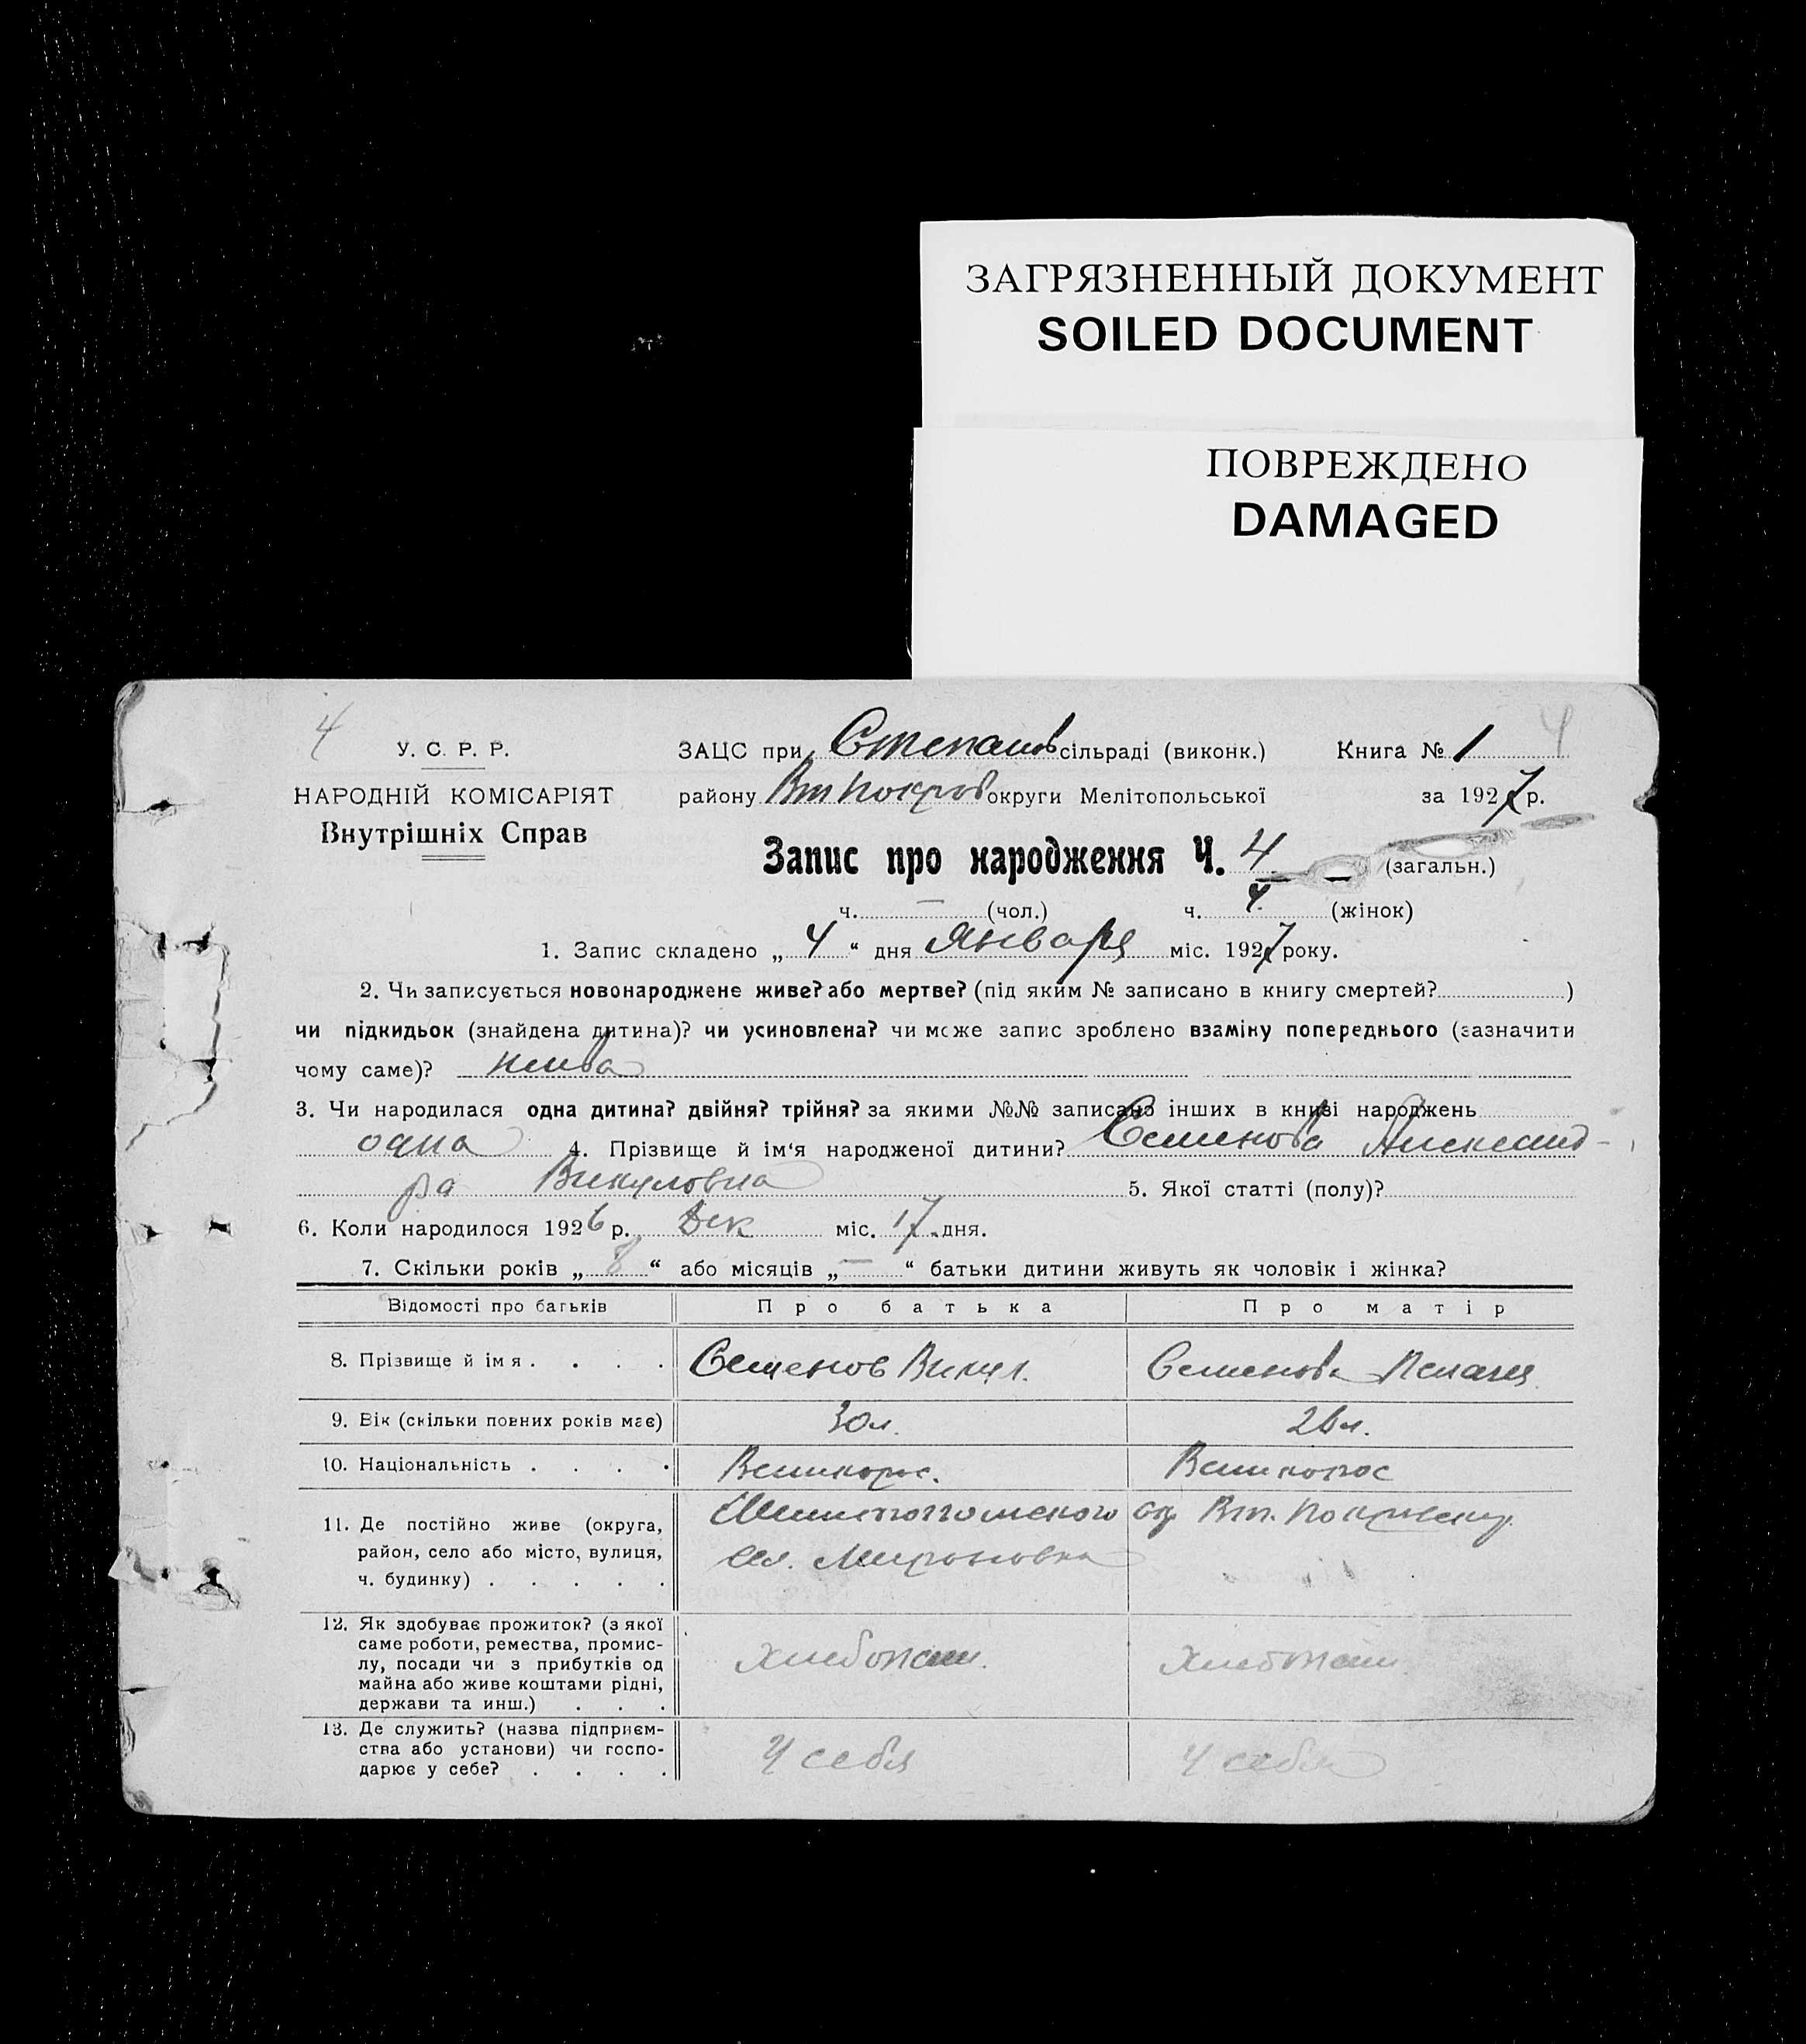 ЗАГРЯЗНЕННЫЙ ДОКУМЕНТ
SOILED DOCUMENT
ПОВРЕЖДЕНО
DAMAGED
4
У. С. Р. Р. ЗАЦС при Степанов сільраді (виконк.) Книга № 1 4
НАРОДНІЙ КОМІСАРІЯТ району Вт Покров округи Мелітопольської за 1927 р.
Внутрішніх Справ
Запис про народження Ч. 4 — (загальн.)
ч. — (чол.) ч. 4. (жінок)
1. Запис складено „ 4 “ дня Января міс. 1927 року.
2. Чи записується новонароджене живе? або мертве? (під яким № записано в книгу смертей? )
чи підкидьок (знайдена дитина)? чи усиновлена? чи може запис зроблено взаміну попереднього (зазначити
чому саме)? жива
3. Чи народилася одна дитина? двійня? трійня? за якими №№ записано інших в книзі народжень
одна 4. Прізвище й ім‘я народженої дитини? Семенова Александ-
ра Викуловна 5. Якої статті (полу)?
6. Коли народилося 1926 р. Дек міс. 17. дня.
7. Скільки років „ 8 “ або місяців „ — “ батьки дитини живуть як чоловік і жінка?
Відомості про батьків Про батька Про матір
8. Прізвище й імя . . . . Семенов Викул. Семенова Пелагея
9. Вік (скільки повних років має) 30 л. 26 л.
10. Національність . . . . Великорос. Великорос
11. Де постійно живе (округа, Мелитопольского ок Вт. Покровску.
район, село або місто, вулиця, сел. Мироновка
ч. будинку) . . . . .
12. Як здобуває прожиток? (з якої
саме роботи, ремества, промис-
лу, посади чи з прибутків од Хлебопаш. Хлебопаш.
майна або живе коштами рідні,
держави та инш.) . . .
13. Де служить? (назва підприєм-
ства або установи) чи госпо- У себя У себя
дарює у себе? . . . .